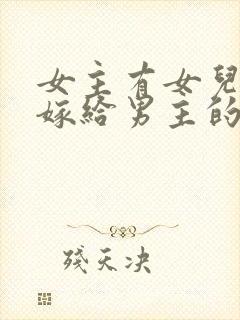 女主有女兒
嫁給男主的
殘天決